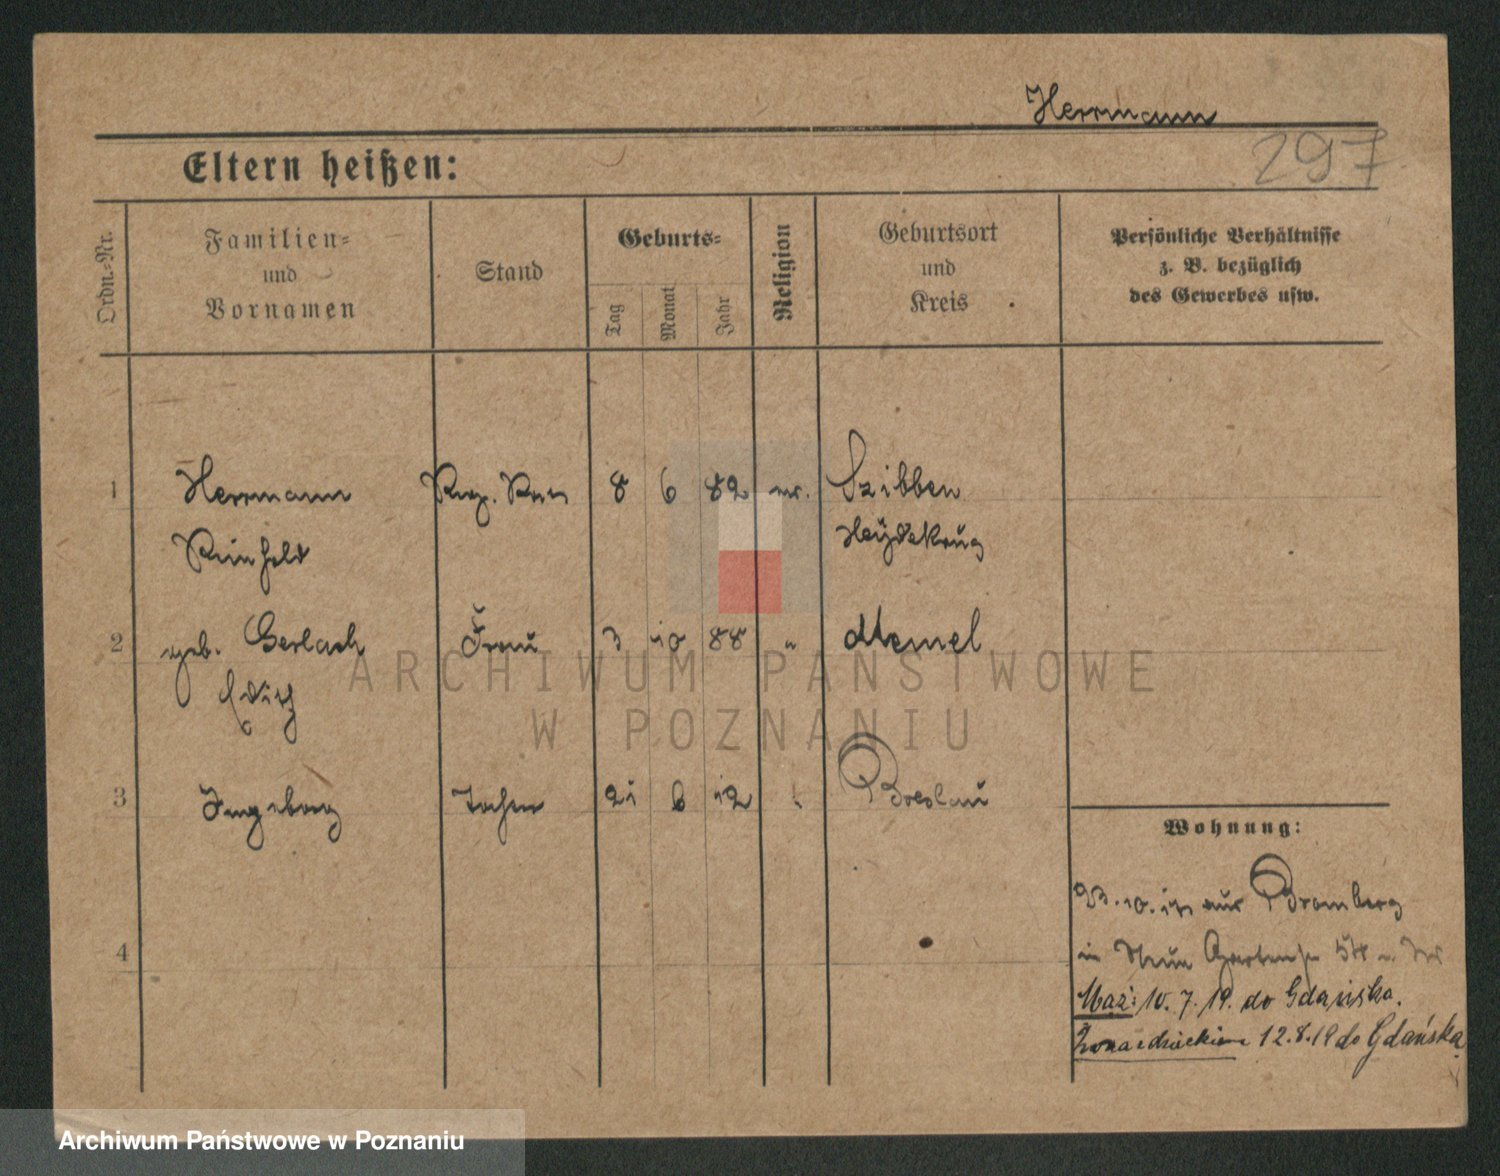 Herrmann
297
Eltern heißen:
Ordn.=Nr.
Familien=
und
Vornamen
Stand
Geburts=
Tag
Monat
Jahr
Religion
Geburtsort
und
Kreis
Persönliche Verhältnisse
z. B. bezüglich
des Gewerbes usw.
1 Herrmann Reg. 8 6 82 ev. Szibben
Reinhold Heydekrug
2 geb. Gerlach Frau 3 10 88 " Memel
Edith
3 Ingeborg Tochter 21 6 12 " Breslau
4
Wohnung:
23.10. aus Bromberg
in Neue Gartenstr 54
Mąż: 10. 7. 19. do Gdańska.
Żona z dzieckiem 12.8.19 do Gdańska
ARCHIWUM PAŃSTWOWE
W POZNANIU
Archiwum Państwowe w Poznaniu